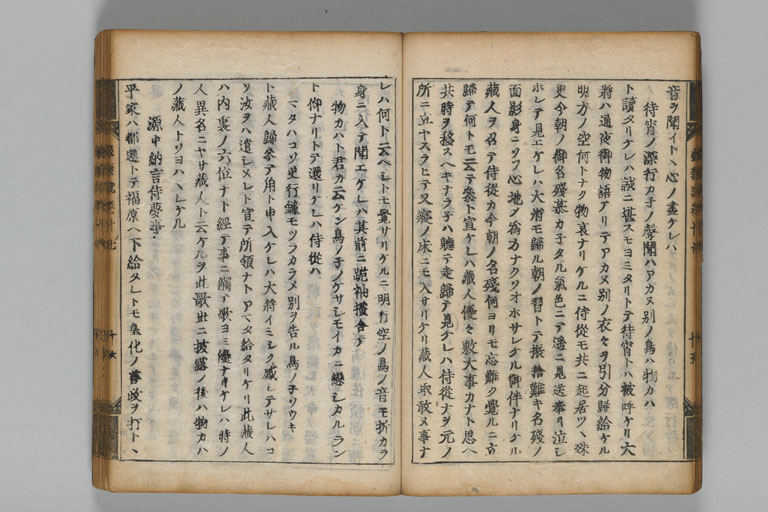 音ヲ聞イトヽ心ノ盡ケレハ
待宵ノ深行カ子ノ聲聞ハアカヌ別ノ鳥ハ物カハ
ト讀タリケレハ誠ニ堪スモヨミタリトテ待宵トハ被呼ケリ大
將ハ通夜御物語アリテアカヌ別ノ衣々ヲ引分歸給ケル
明方ノ空何トナク物哀ナリケルニ侍從モ共ニ起居ツヽ殊
更今朝ノ御名殘慕カ子タル氣色ニテ遙ニ見送奉リ泣シ
ホレテ見エケレハ大將モ歸ル朝ノ習トテ振捨難キ名殘ノ
面影身ニソフ心地メ爲方ナクソオホサレケル御伴ナリケル
藏人ヲ召テ侍從カ今朝ノ名殘何ヨリモ忘難ク覺ルニ立
歸テ何トモ云テ參ト宣ケレハ藏人優々敷大事カナト思ヘ
共時ヲ移スヘキナラ子ハ聽テ走歸テ見ケレハ侍從ナヲ元ノ
所ニ立ヤスラヒテ又寢ノ床ニモ入サリケリ藏人取敢ヌ事ナ
レハ何ト云ヘシトモ覺サリケルニ明行空ノ鳥ノ音モ折カラ
身ニ入テ聞エケレハ其前ニ跪袖搔合テ
物カハト君カ云ケン鳥ノ子ノケサシモイカニ戀シカルラン
ト仰ナリトテ還リケレハ侍從ハ
マタハコソ更行鐘モツラカラメ別ヲ告ル鳥ノ子ソウキ
ト藏人歸參テ角ト申入ケレハ大將イミシク感シテサレハコ
ソ汝ヲハ遣シメレト宣テ所領ナトアマタ給タリケリ此藏人
ハ内裏ノ六位ナト經テ事ニ觸テ歌ヨミ優ナリケレハ時ノ
人異名ニヤサ藏人ト云ケルヲ此歌世ニ披露ノ後ハ物カハ
ノ藏人トソヨハヽレケル
源中納言侍夢事
平家ハ都遷トテ福原ヘ下給タレトモ皇化ノ ヲ打トヽ